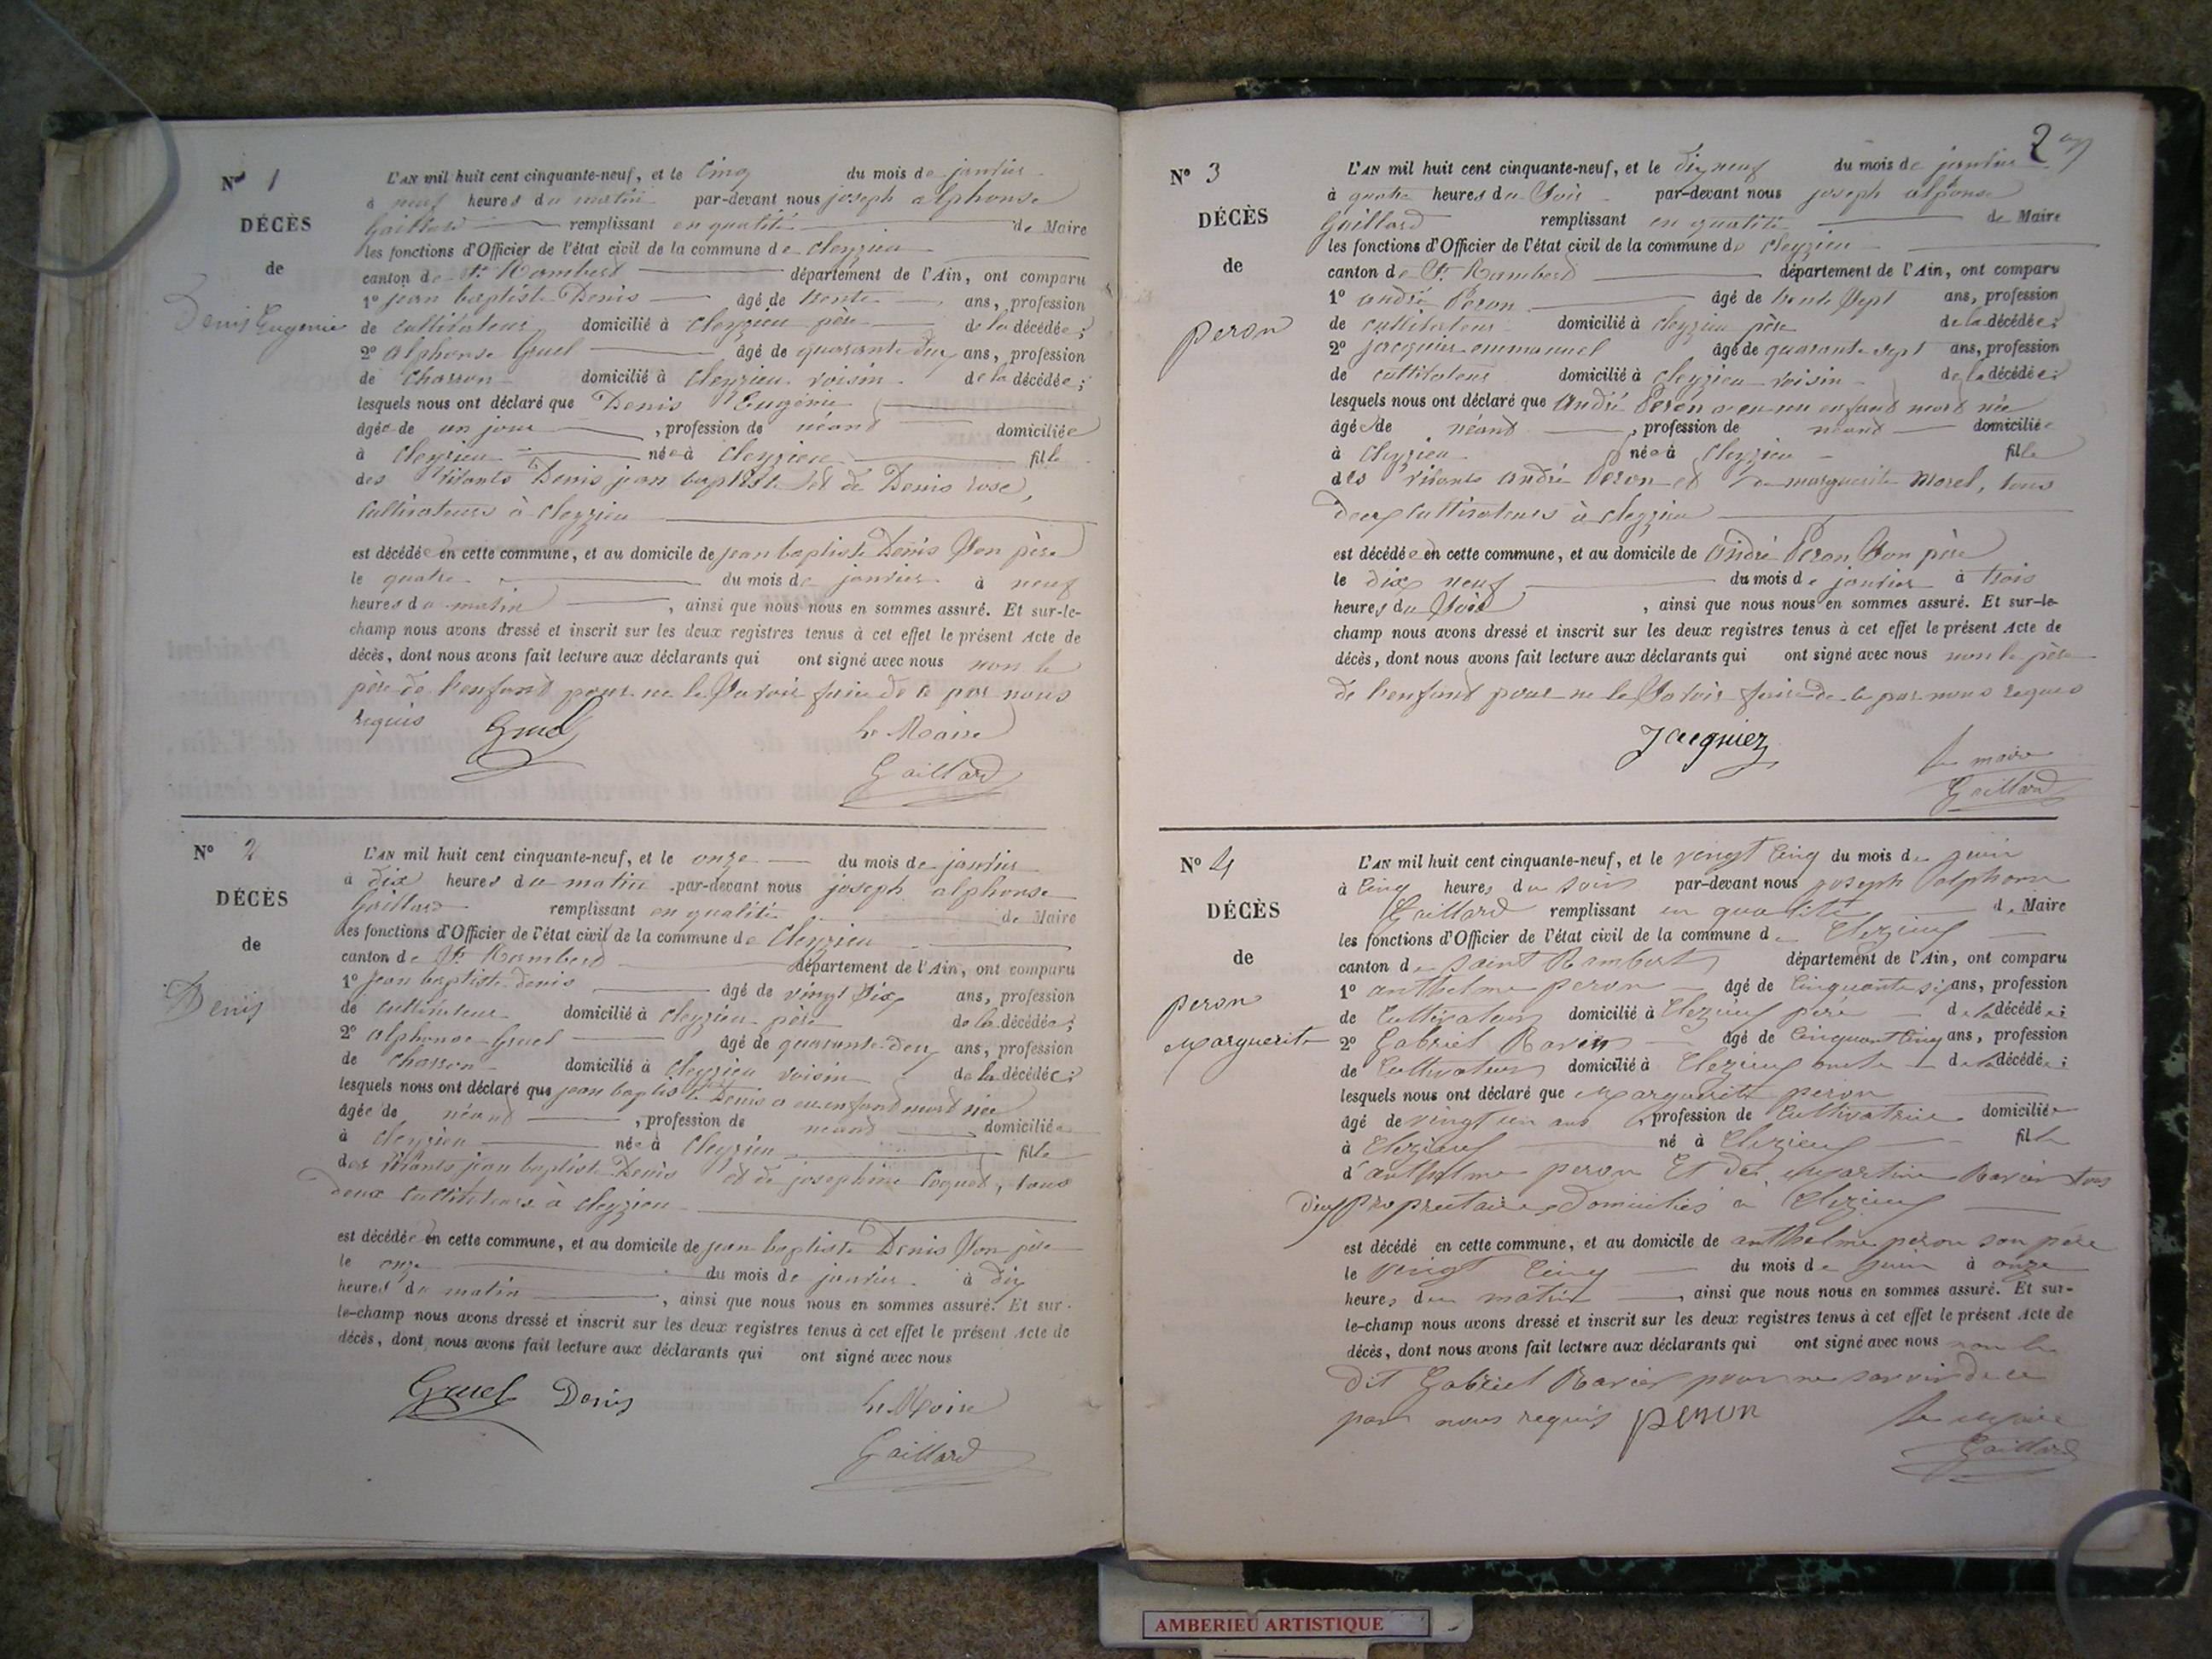 N° 1
DÉCÈS
de
Denis Eugénie
L'AN mil huit cent cinquante-neuf, et le cinq du mois de janvier
à neuf heures du matin par-devant nous joseph alphonse
Gaillard remplissant en qualité de Maire
les fonctions d'Officier de l'état civil de la commune de Cleyzieu
canton de St. Rambert département de l'Ain, ont comparu
1° jean baptiste Denis âgé de trente ans, profession
de cultivateur domicilié à Cleyzieu père de la décédée;
2° alphonse Gruel âgé de quarante deux ans, profession
de charron domicilié à Cleyzieu voisin de la décédée;
lesquels nous ont déclaré que Denis Eugénie
âgée de un jour, profession de néant domiciliée
à Cleyzieu née à Cleyzieu fille
des vivants Denis jean baptiste et de Denis rose,
cultivateurs à Cleyzieu
est décédée en cette commune, et au domicile de jean baptiste Denis son père
le quatre du mois de janvier à neuf
heures du matin, ainsi que nous nous en sommes assuré. Et sur-le-
champ nous avons dressé et inscrit sur les deux registres tenus à cet effet le présent Acte de
décès, dont nous avons fait lecture aux déclarants qui ont signé avec nous non le
père de l'enfant pour ne le savoir faire de ce par nous
requis Gruel le Maire
Gaillard
N° 2
DÉCÈS
de
Denis
L'AN mil huit cent cinquante-neuf, et le onze du mois de janvier
à dix heures du matin par-devant nous joseph alphonse
Gaillard remplissant en qualité de Maire
les fonctions d'Officier de l'état civil de la commune de Cleyzieu
canton de St. Rambert département de l'Ain, ont comparu
1° jean baptiste denis âgé de vingt six ans, profession
de cultivateur domicilié à Cleyzieu père de la décédée;
2° alphonse Gruel âgé de quarante deux ans, profession
de charron domicilié à Cleyzieu voisin de la décédée;
lesquels nous ont déclaré que jean baptiste Denis a eu enfant mort née
âgée de néant, profession de néant domiciliée
à Cleyzieu née à Cleyzieu fille
des vivants jean baptiste Denis et de josephine Coquet, tous
deux cultivateurs à Cleyzieu
est décédée en cette commune, et au domicile de jean baptiste Denis son père
le onze du mois de janvier à dix
heures du matin, ainsi que nous nous en sommes assuré. Et sur-
le-champ nous avons dressé et inscrit sur les deux registres tenus à cet effet le présent Acte de
décès, dont nous avons fait lecture aux déclarants qui ont signé avec nous
Gruel Denis le Maire
Gaillard
2
N° 3
DÉCÈS
de
peron
L'AN mil huit cent cinquante-neuf, et le dix neuf du mois de janvier
à quatre heures du soir par-devant nous joseph alphonse
Gaillard remplissant en qualité de Maire
les fonctions d'Officier de l'état civil de la commune de Cleyzieu
canton de St. Rambert département de l'Ain, ont comparu
1° andré Peron âgé de trente sept ans, profession
de cultivateur domicilié à Cleyzieu père de la décédée;
2° jacquier emmanuel âgé de quarante sept ans, profession
de cultivateur domicilié à Cleyzieu voisin de la décédée;
lesquels nous ont déclaré que André Peron a eu un enfant mort née
âgée de néant, profession de néant domiciliée
à Cleyzieu née à Cleyzieu fille
des vivants andré Peron et de marguerite Morel, tous
deux cultivateurs à Cleyzieu
est décédée en cette commune, et au domicile de André Peron son père
le dix neuf du mois de janvier à trois
heures du soir, ainsi que nous nous en sommes assuré. Et sur-le-
champ nous avons dressé et inscrit sur les deux registres tenus à cet effet le présent Acte de
décès, dont nous avons fait lecture aux déclarants qui ont signé avec nous non le père
de l'enfant pour ne le savoir faire de ce par nous requis
Jacquiez le maire
Gaillard
N° 4
DÉCÈS
de
peron
Marguerite
L'AN mil huit cent cinquante-neuf, et le vingt cinq du mois de juin
à cinq heures du soir par-devant nous joseph alphonse
Gaillard remplissant en qualité de Maire
les fonctions d'Officier de l'état civil de la commune de Clezieux
canton de saint Rambert département de l'Ain, ont comparu
1° anthelme peron âgé de cinquante six ans, profession
de Cultivateur domicilié à Clezieux père de la décédée;
2° Gabriel Ravier âgé de cinquant cinq ans, profession
de Cultivateur domicilié à Clezieux oncle de la décédée;
lesquels nous ont déclaré que Marguerite peron
âgé de vingt un ans profession de Cultivatrice domiciliée
à Clezieux né à Clezieux fille
d'anthelme peron Et de Martine Ravier tous
deux propriétaires domiciliés à Clezieux
est décédé en cette commune, et au domicile de anthelme peron son père
le vingt cinq du mois de juin à onze
heures du matin, ainsi que nous nous en sommes assuré. Et sur-
le-champ nous avons dressé et inscrit sur les deux registres tenus à cet effet le présent Acte de
décès, dont nous avons fait lecture aux déclarants qui ont signé avec nous non le
dit Gabriel Ravier pour ne savoir de ce
par nous requis peron le Maire
Gaillard
AMBERIEU ARTISTIQUE